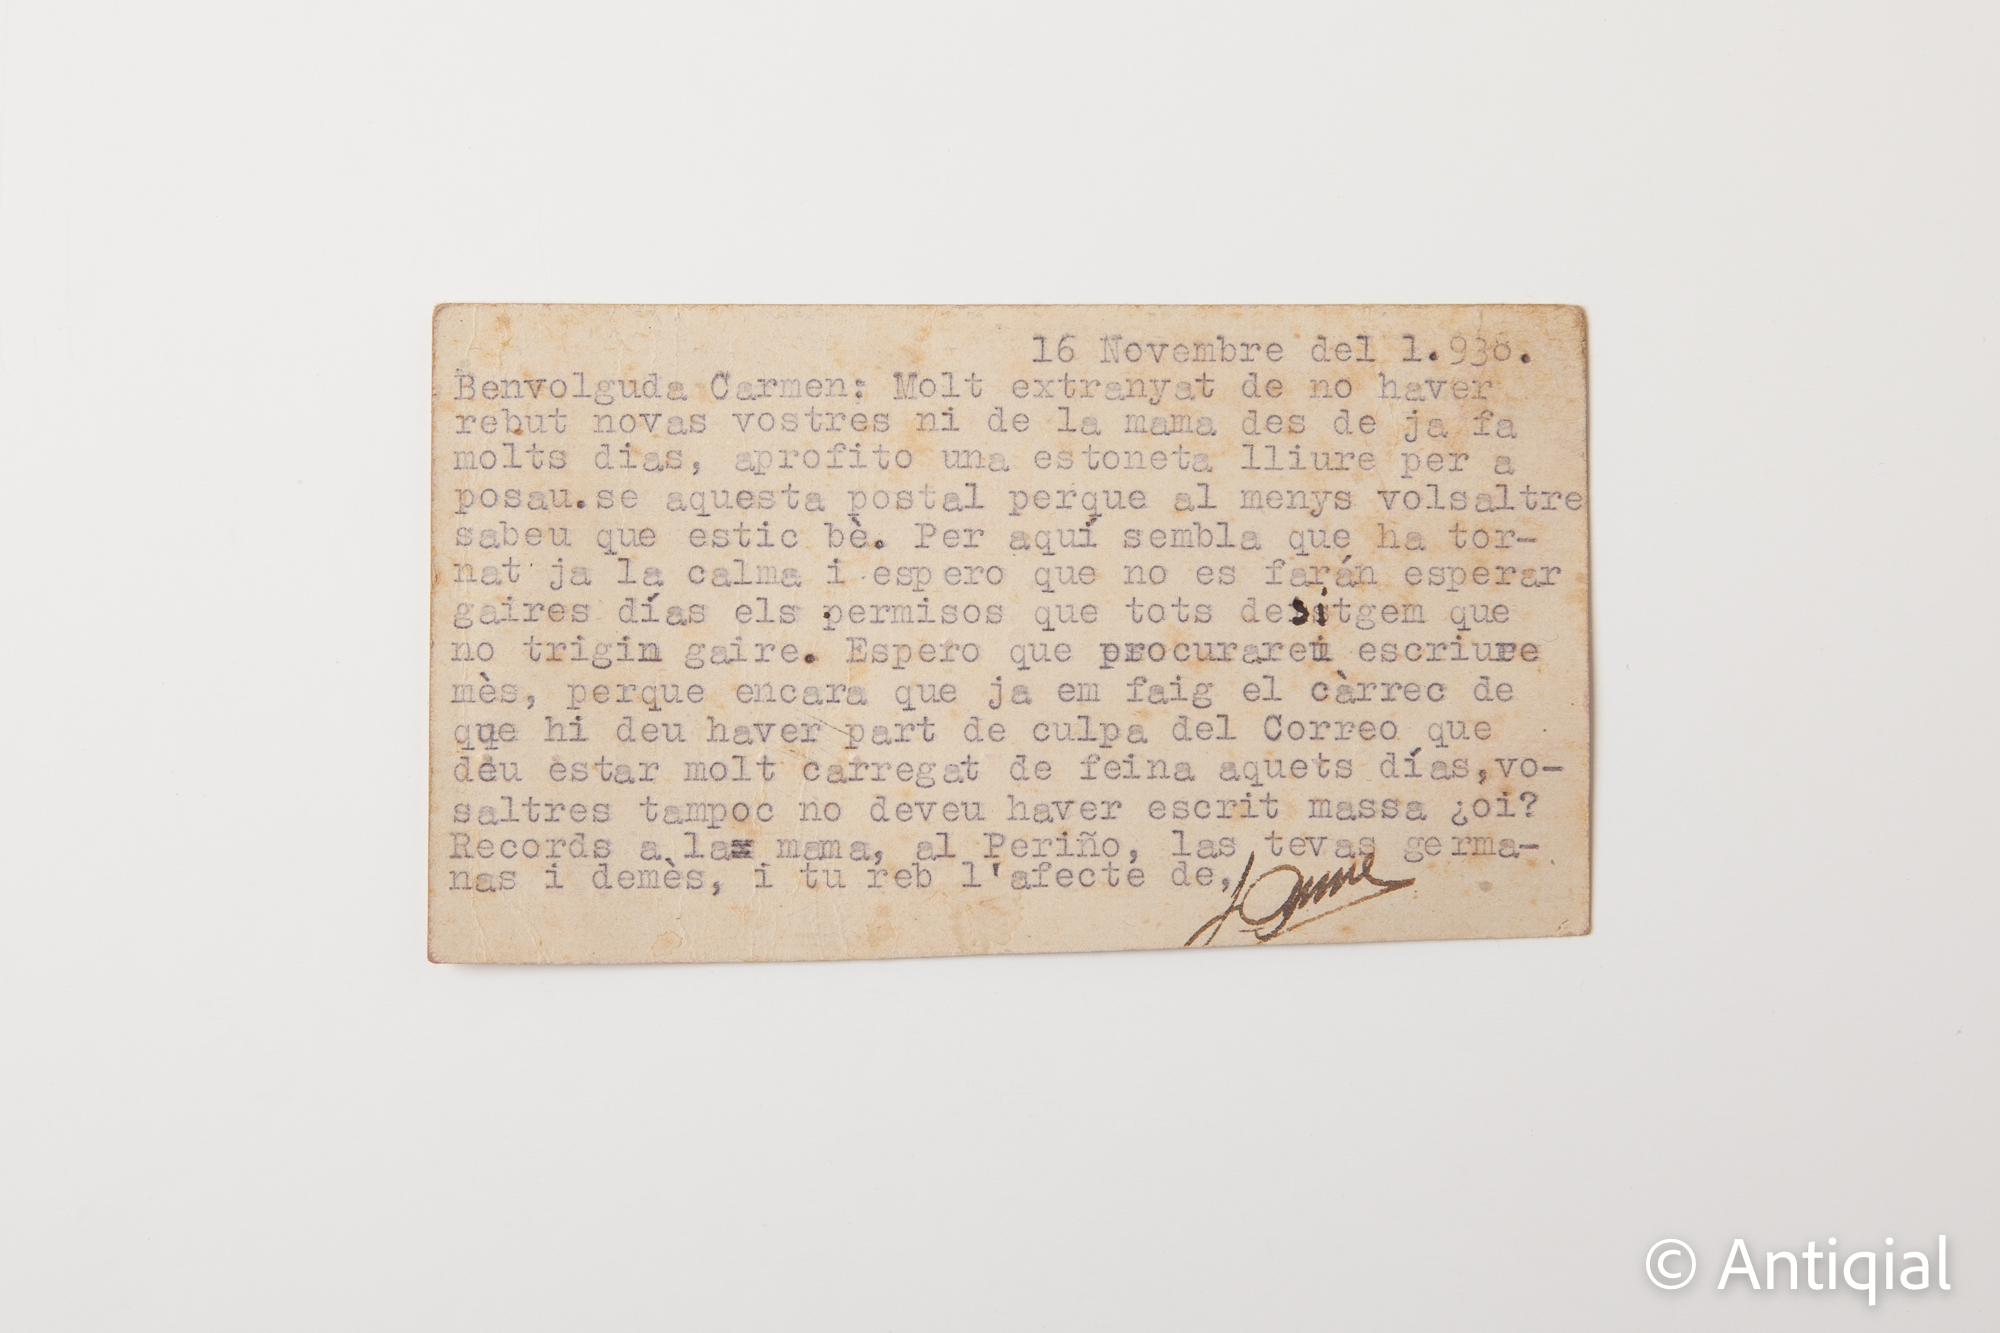 16 Novembre del 1.938.
Benvolguda Carmen: Molt extranyat de no haver
rebut novas vostres ni de la mama des de ja fa
molts dias, aprofito una estoneta lliure per a
posau.se aquesta postal perque al menys volsaltre
sabeu que estic bè. Per aquí sembla que ha tor-
nat ja la calma i espero que no es farán esperar
gaires días els permisos que tots desitgem que
no trigin gaire. Espero que procurareu escriure
mès, perque encara que ja em faig el càrrec de
que hi deu haver part de culpa del Correo que
deu estar molt carregat de feina aquets días,vo-
saltres tampoc no deveu haver escrit massa ¿oi?
Records a la mama, al Periño, las tevas germa-
nas i demès, i tu reb l'afecte de,
© Antiqial